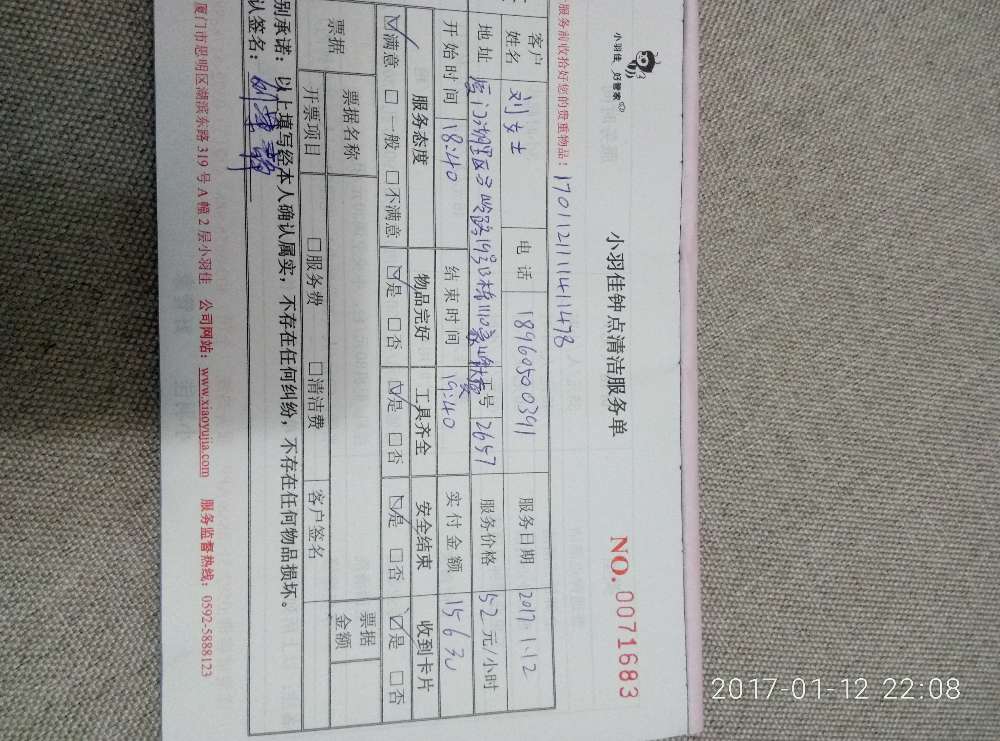 小羽佳 好管家
小羽佳钟点清洁服务单
NO. 0071683
服务前收拾好您的贵重物品：1701121114111478
客户姓名 刘女士 电话 18960500391 服务日期 2017.1.12
地址 工号 2657 服务价格 52 元/小时
开始时间 18:40 结束时间 19:40 实付金额
服务态度 物品完好 工具齐全 安全结束 收到卡片
☑满意 □一般 □不满意 ☑是 □否 ☑是 □否 ☑是 □否 ☑是 □否
票据 票据名称 票据金额
开票项目 □服务费 □清洁费 客户签名
别承诺：以上填写经本人确认属实，不存在任何纠纷，不存在任何物品损坏。
认签名：
厦门市思明区湖滨东路 319 号 A 幢 2 层小羽佳 公司网站：www.xiaoyujia.com 服务监督热线：0592-5888123
2017-01-12 22:08